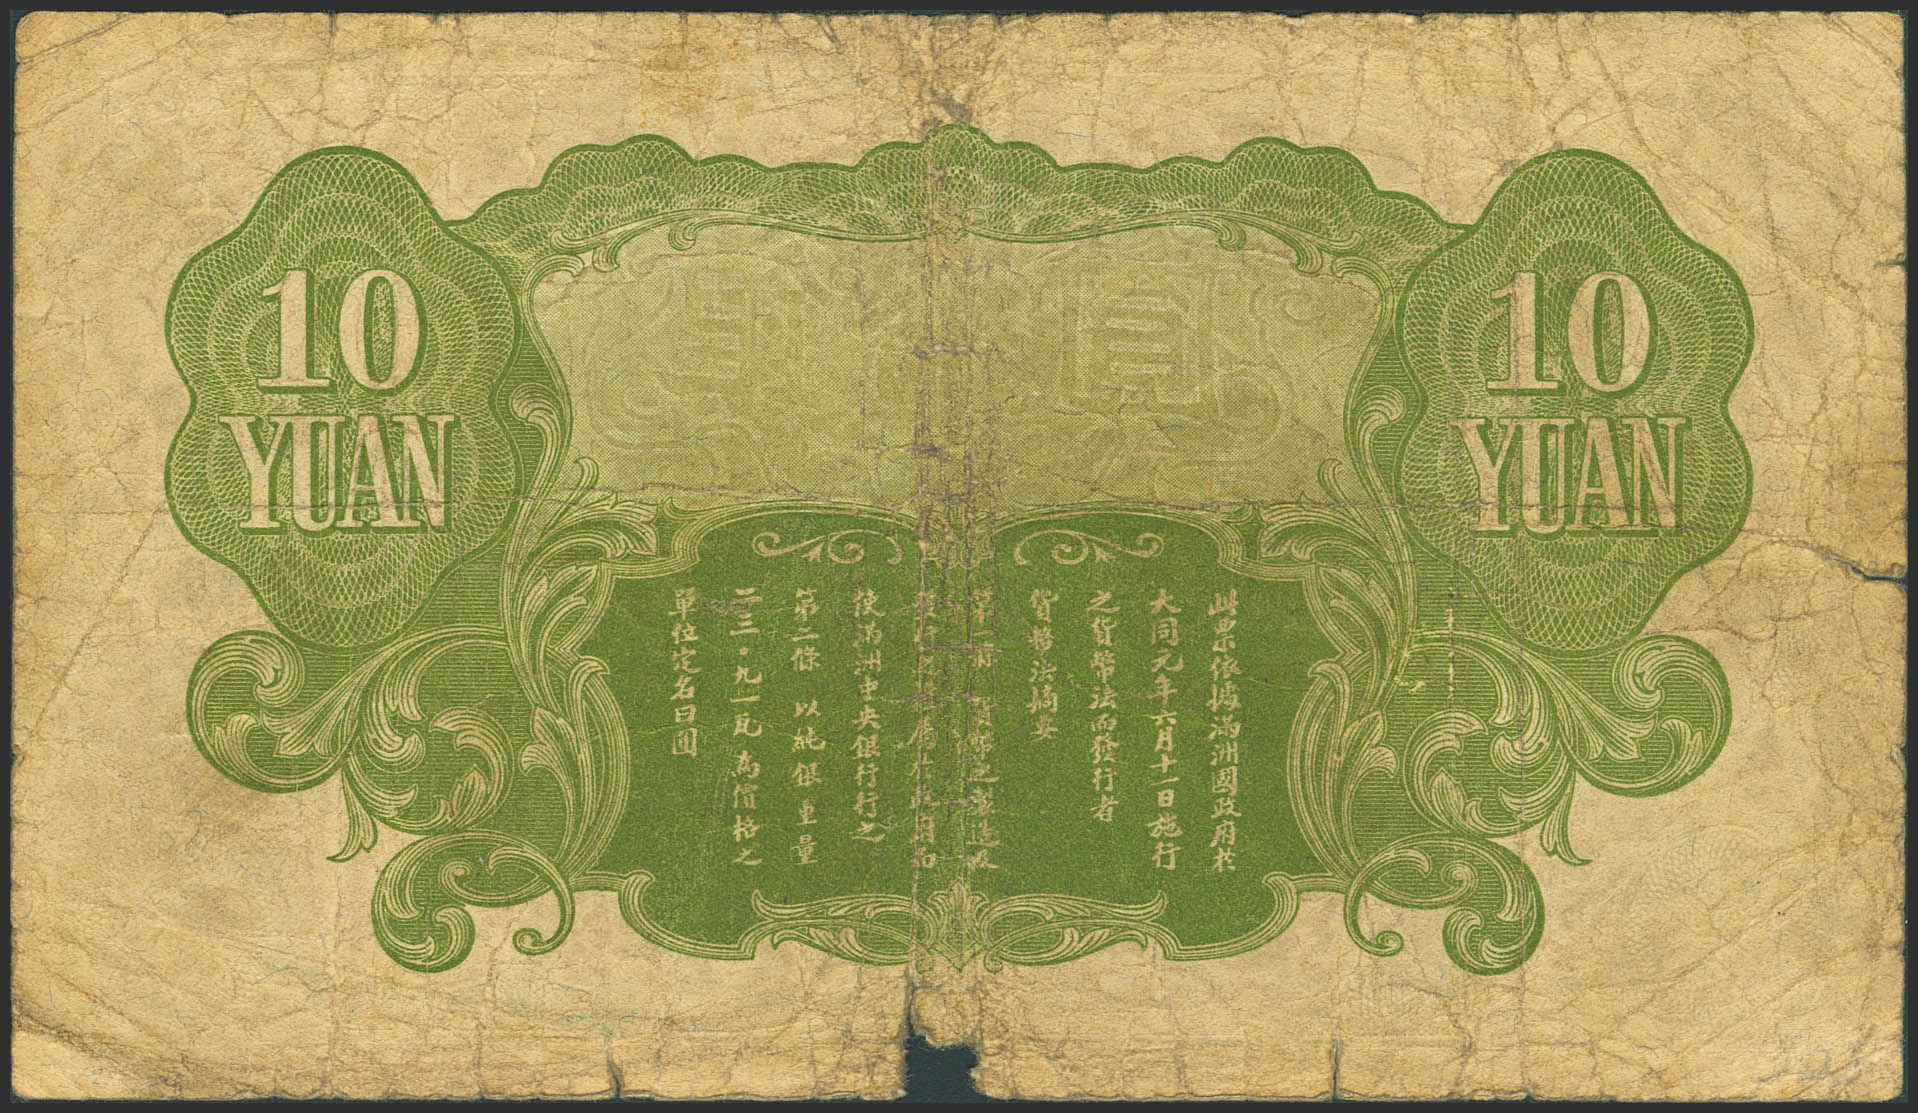 10
YUAN
10
YUAN
此票依據滿洲國政府於
大同元年六月十一日施行
之貨幣法而發行者
貨幣法摘要
第一條 貨幣之製造及
發行之權屬於政府而
使滿洲中央銀行行之
第二條 以純銀重量
二三・九一瓦為價格之
單位定名曰圓